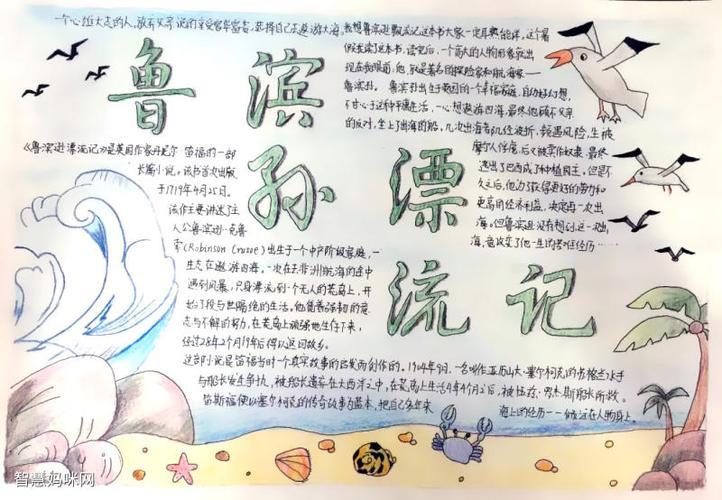 一个心雄大志的人,放弃父亲说的享受富年富贵,选择自己去遨游大海,
我想鲁滨逊飘流记这本书大家一定耳熟能详,这个暑
假我读了这本书,读完后,一个高大的人物形象就出
现在我眼前,他,就是著名的探险家和航海家——
鲁滨孙。鲁滨孙出生于英国的一个幸福家庭,自幼好幻想,
不甘心于这种平庸生活,一心想遨游四海,最终他顾不父亲
的反对,坐上了出海的船。几次出海都几经波折,频遇风险,生被
摩尔人俘虏,后又被卖作奴隶,最终
逃出了巴西成了种植园主。但是不
久之后,他为了获得更好的劳力和
更高的经济利益,决定再一次出
海。但鲁滨逊没有想到,这一次出
海,竟改变了他一生的苦难经历……
鲁滨
孙漂
流记
《鲁滨逊漂流记》是英国作家丹尼尔·笛福的一部
长篇小说。该书首次出版
于1719年4月25日。
该作主要讲述了主
人公鲁滨逊·克鲁
索(Robinson Crusoe)出生于一个中产阶级家庭,一
生志在遨游四海。一次在去非洲航海的途中
遇到风暴,只身漂流到一个无人的荒岛上,开
始了段与世隔绝的生活。他凭着强韧的意
志与不懈的努力,在荒岛上顽强地生存下来,
经过28年2个月19天后得以返回故乡。
这部小说是笛福受当时一个真实故事的启发而创作的。1704年9月,一名叫亚历山大·塞尔柯克的苏格兰水手
与船长发生争执,被船长遗弃在大西洋之中,在荒岛上生活4年4个月之后,被伍兹·罗杰斯船长所救。
笛斯福便以塞尔柯克的传奇故事为蓝本,把自己多年来
海上的经历——倾注在人物身上。
智慧妈咪网